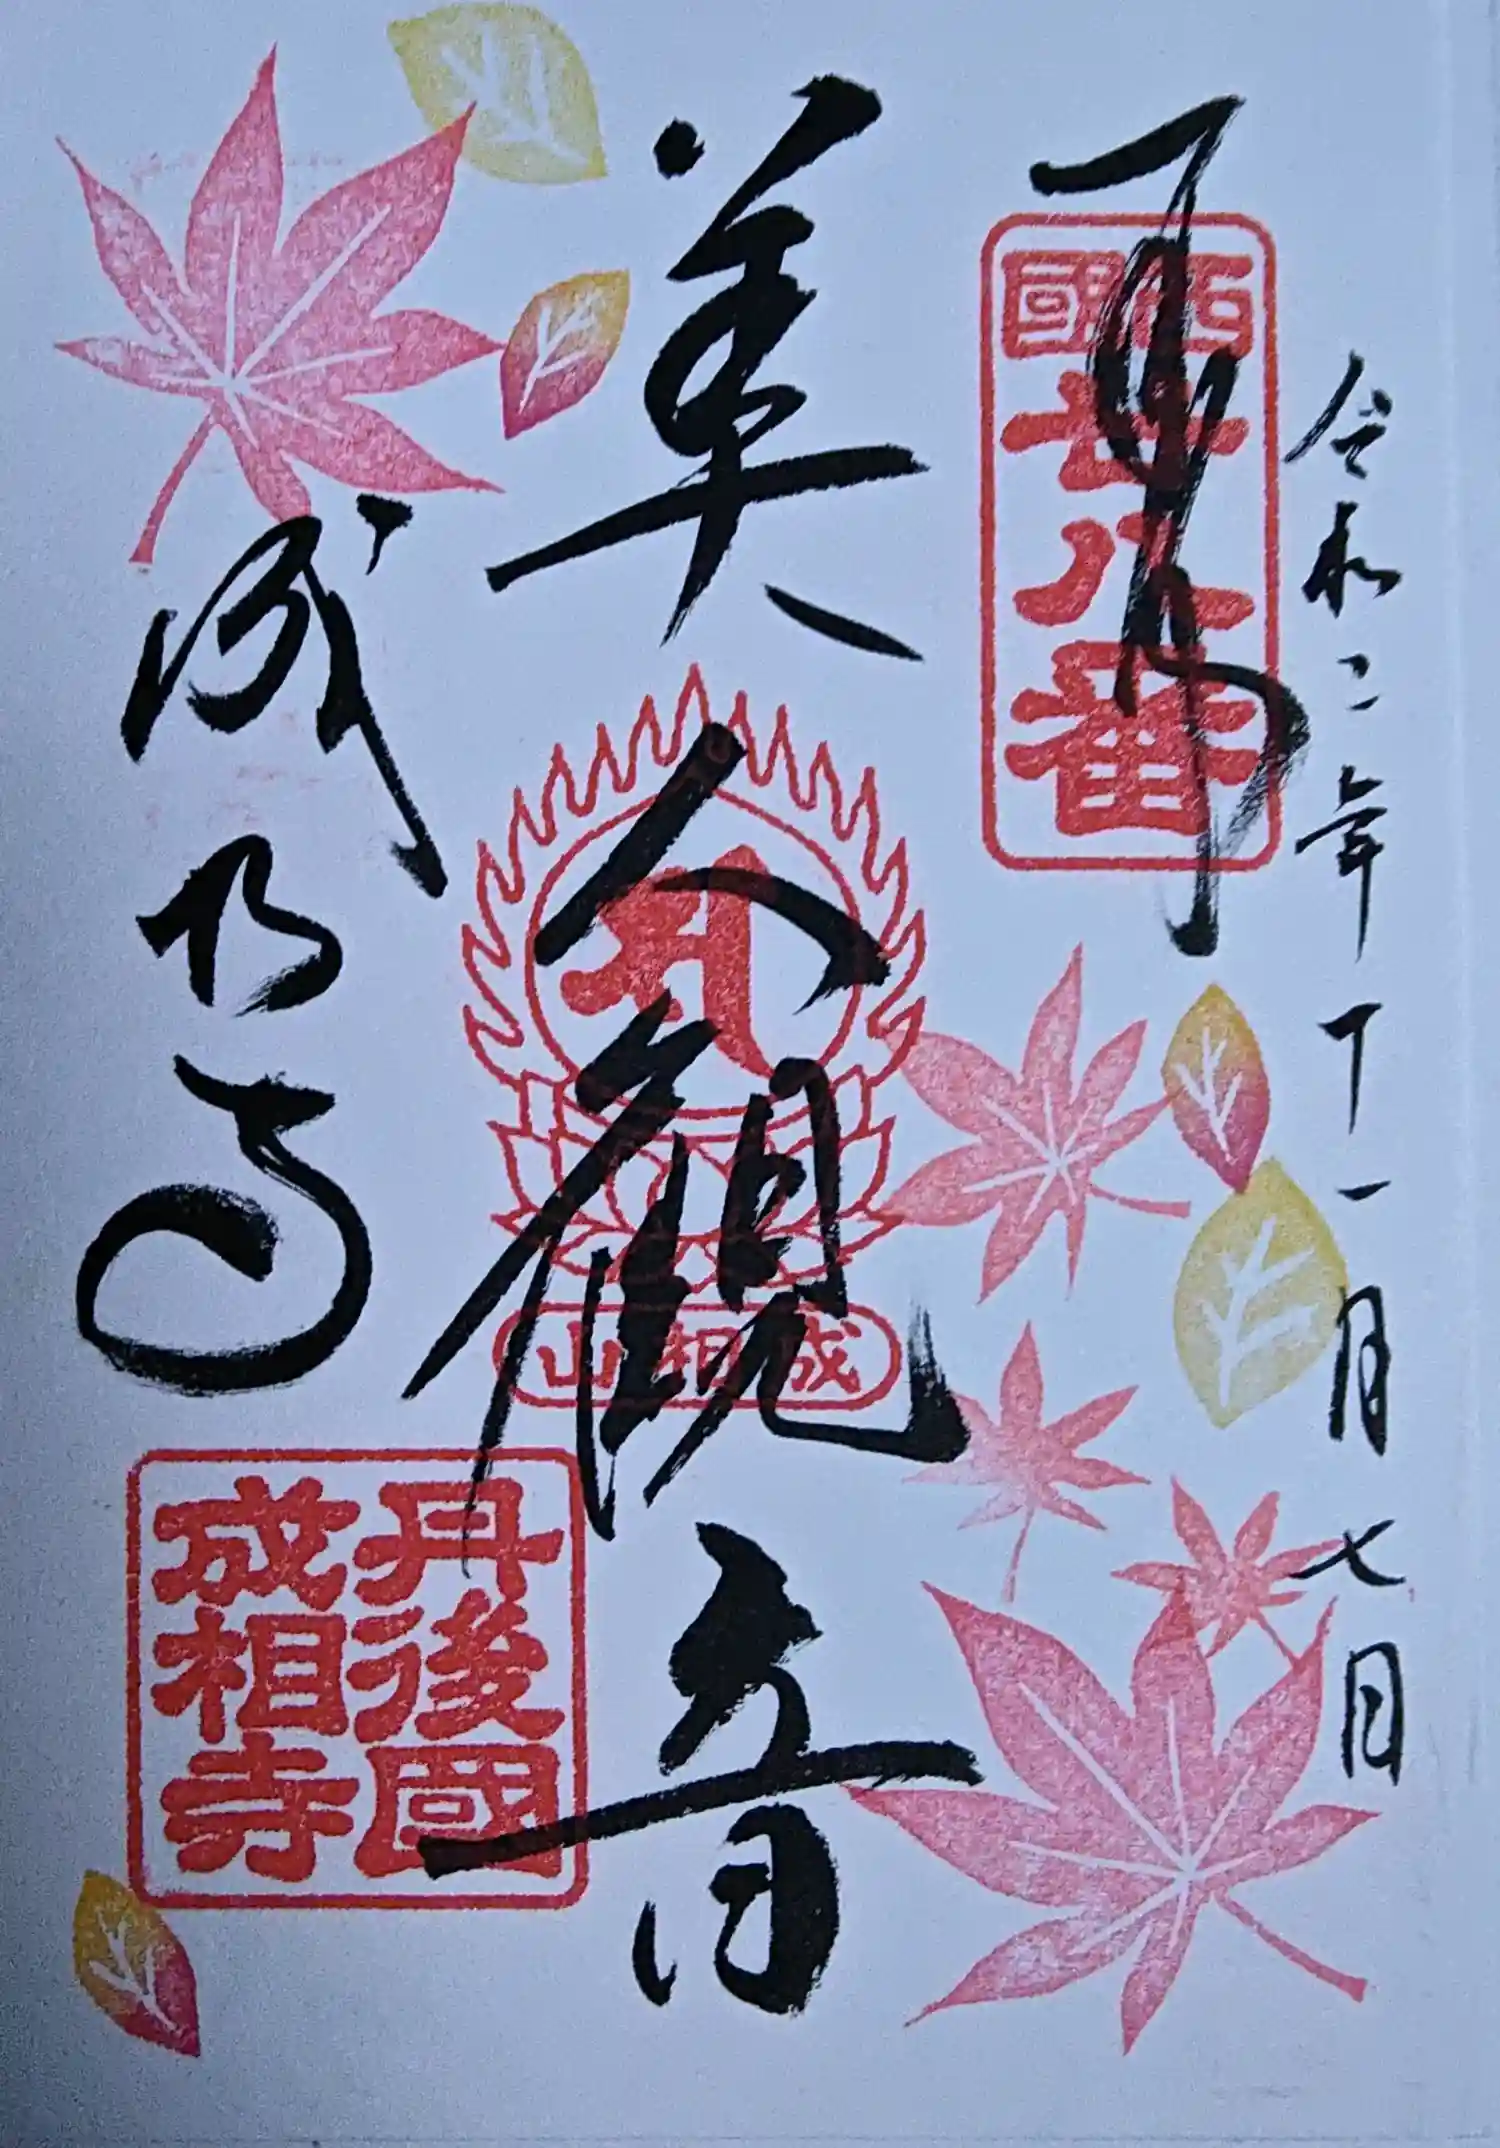 令和二年十一月七日
奉拝
西國
廿八番
美人観音
成相山
成相寺
丹後國
成相寺